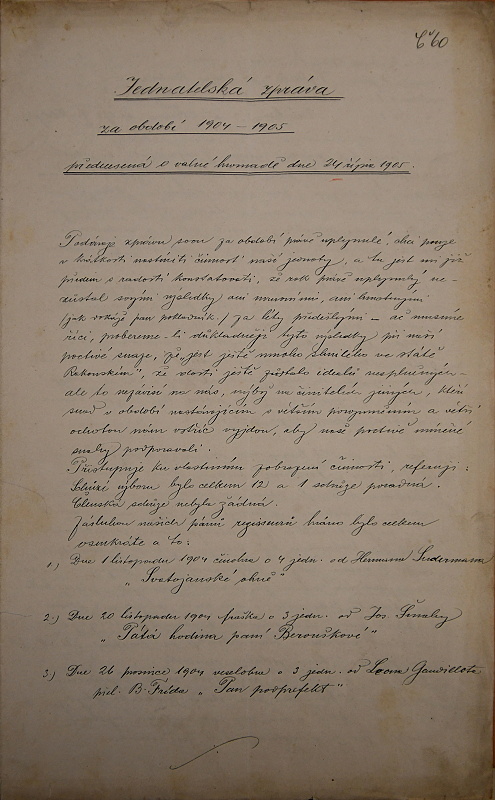 Č 60
Jednatelská zpráva
za období 1904 – 1905
přednesená o valné hromadě dne 24 října 1905.
Podávaje zprávu svou za období právě uplynulé, chci pouze
v krátkosti nastíniti činnost naší jednoty, a tu jest mi již
předem s radostí konstatovati, že rok právě uplynulý ne-
zůstal svými výsledky ani morálními, ani hmotnými
(jak dokáže pan pokladník,) za léty předešlými – ač musíme
říci, probéřeme-li důkladněji tyto výsledky při naší
poctivé snaze, že „jest ještě mnoho shnilého ve státě
, že dosti ještě zůstalo ideálů nesplněných –
ale to nezávisí na nás, nýbrž na činitelích jiných, kteří
snad v období nastávajícím s větším porozuměním a větší
ochotou nám vstříc vyjdou, aby naše poctivé míněné
snahy podporovali.
Přistupuje ku vlastnímu zobrazení činnosti, referuji:
Schůzí výboru bylo celkem 12 a 1 schůze poradná.
Členská schůze nebyla žádná.
Zásluhou našich pánů regisseurů hráno bylo celkem
osmkráte a to:
1.) Dne 1 listopadu 1904 činohra o 4 jedn. od Hermanna Sudermanna
„Svatojanské ohně"
2.) Dne 20 listopadu 1904 fraška o 3 jedn. od Jos. Šmahy
„Pátá hodina paní Berouškové"
3.) Dne 26 prosince 1904 veselohra o 3 jedn. od Leona Gandillota
přel. B. Frída „Pan podprefekt"